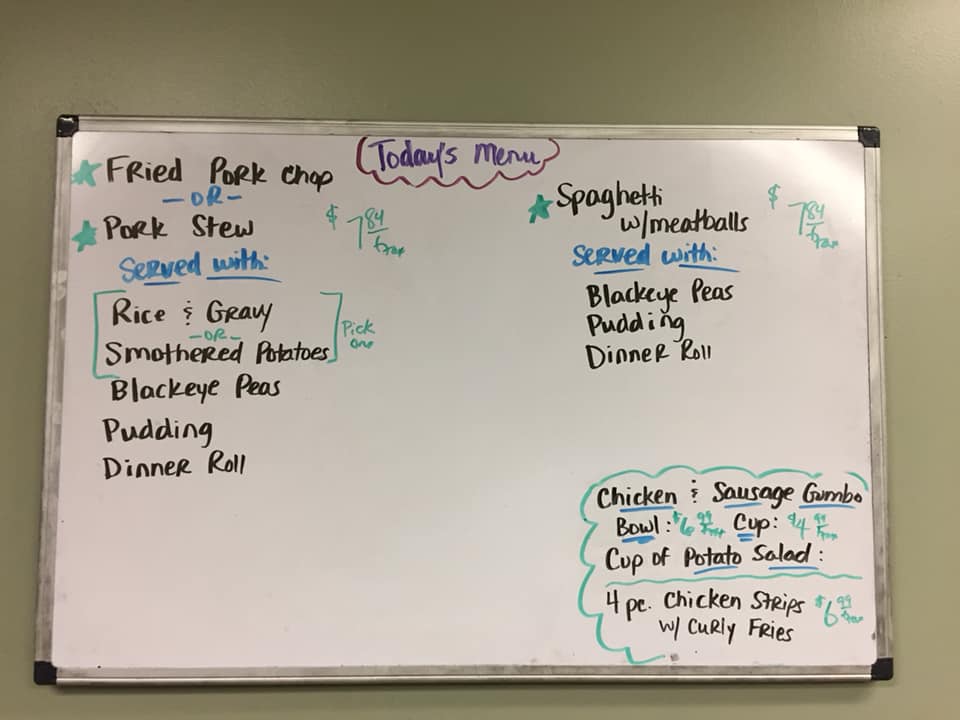 Today's Menu
Fried Pork Chop
- OR -
Pork Stew
$7.84 + tax
Served with:
Rice & Gravy
- OR -
Smothered Potatoes
Pick one
Blackeye Peas
Pudding
Dinner Roll
Spaghetti
w/meatballs
$7.84 + tax
Served with:
Blackeye Peas
Pudding
Dinner Roll
Chicken & Sausage Gumbo
Bowl: $6.99 + tax Cup: $4.99 + tax
Cup of Potato Salad:
4 pc. Chicken Strips $6.99 + tax
w/ Curly Fries